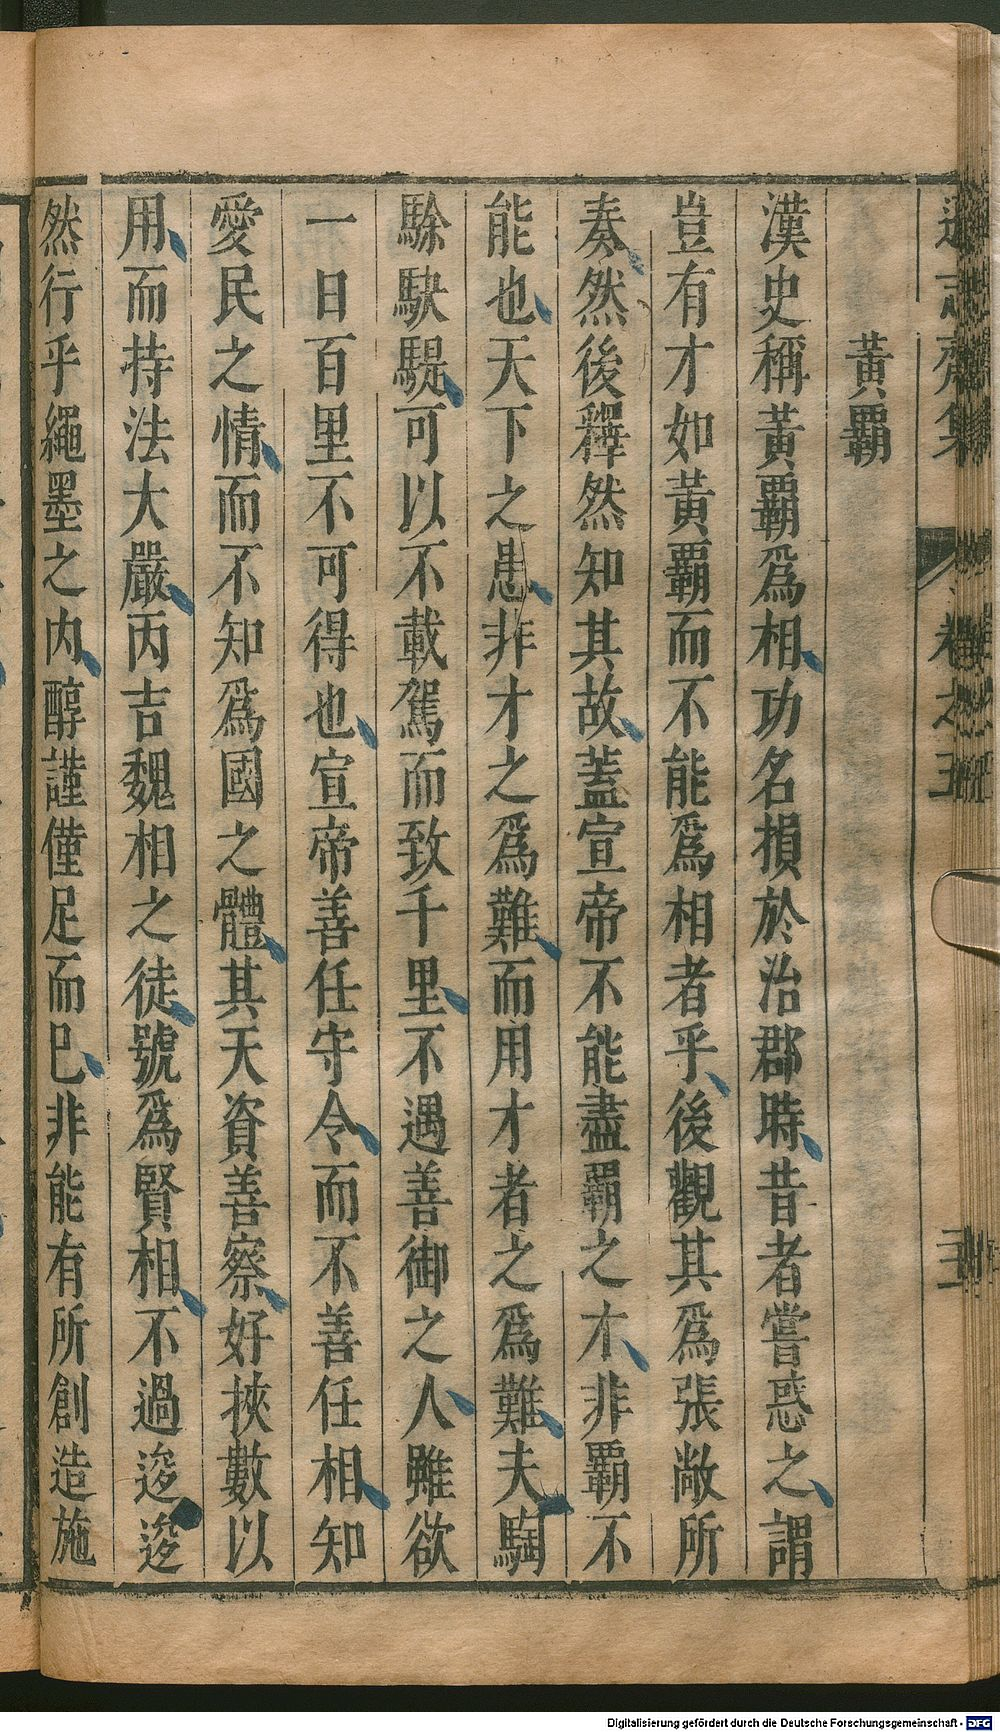 黃霸
漢史稱黃霸爲相功名損於治郡時昔者嘗惑之謂
豈有才如黃霸而不能爲相者乎後觀其爲張敞所
奏然後釋然知其故蓋宣帝不能盡霸之才非霸不
能也天下之患非才之爲難而用才者之爲難夫騊
駼駃騠可以不載駕而致千里不遇善御之人雖欲
一日百里不可得也宣帝善任守令而不善任相知
愛民之情而不知爲國之體其天資善察好挾數以
用而持法大嚴丙吉魏相之徒號爲賢相不過逡逡
然行乎繩墨之内醇謹僅足而巳非能有所創造施
Digitalisierung gefördert durch die Deutsche Forschungsgemeinschaft - DFG